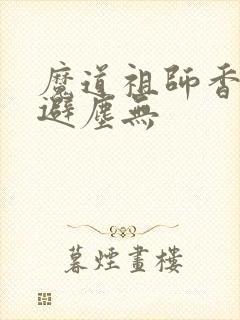 魔道祖師香
避塵無
暮煙畫樓